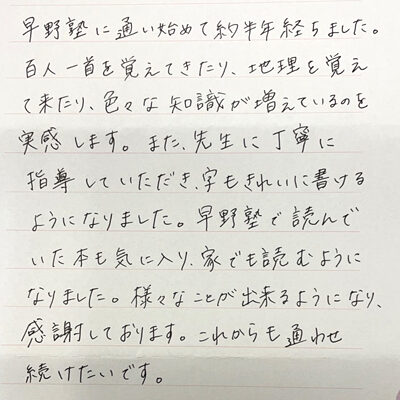 早野塾に通い始めて約半年経ちました。
百人一首を覚えてきたり、地理を覚え
て来たり、色々な知識が増えているのを
実感します。また、先生に丁寧に
指導していただき、字もきれいに書ける
ようになりました。早野塾で読んで
いた本も気に入り、家でも読むように
なりました。様々なことが出来るようになり、
感謝しております。これからも通わせ
続けたいです。